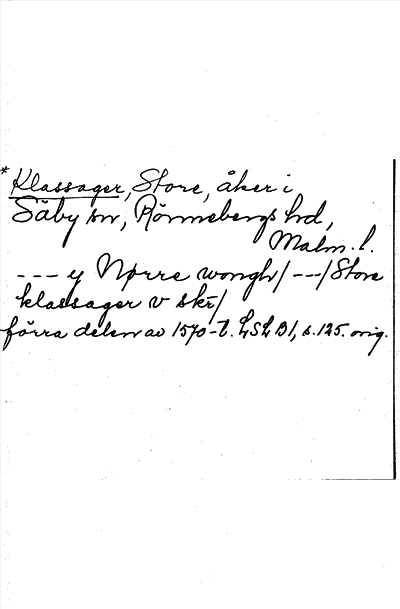 *Klassager, Store, åker i
Säby sn, Rönnebergs hd,
Malm. l.
--- y Nørre wongh/ ---/Store
klassager v skr/
förra delen av 1570-t. LSLB1, s. 125. orig.